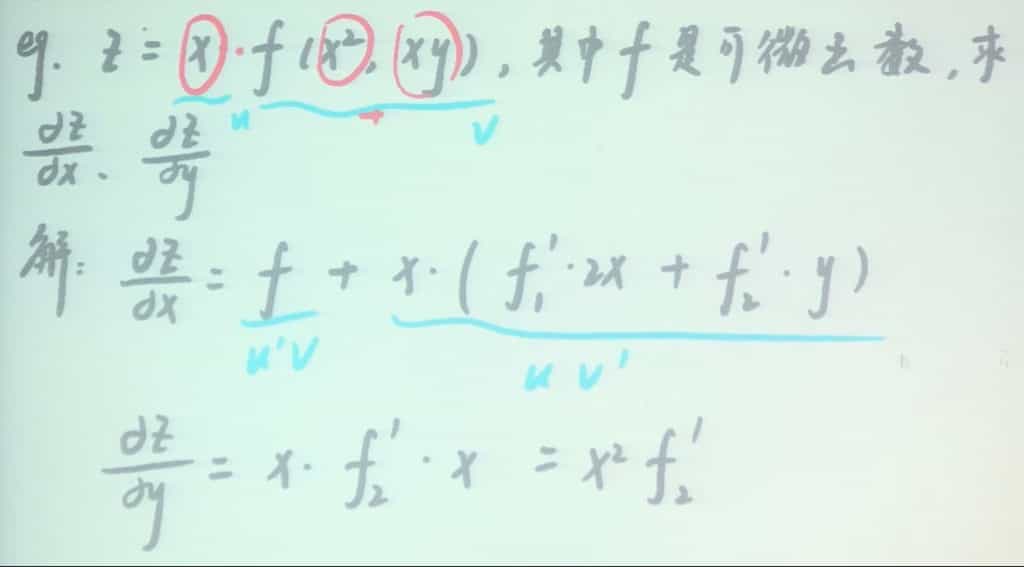 eg. z = x · f (x², xy), 其中 f 是可微函数, 求
u v
∂z/∂x、 ∂z/∂y
解: ∂z/∂x = f + x · ( f₁′ · 2x + f₂′ · y )
u′v uv′
∂z/∂y = x · f₂′ · x = x² f₂′